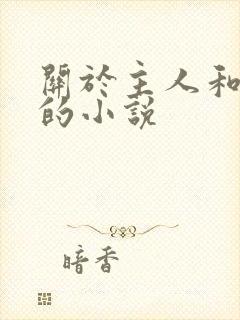 關於主人和
的小說
暗香